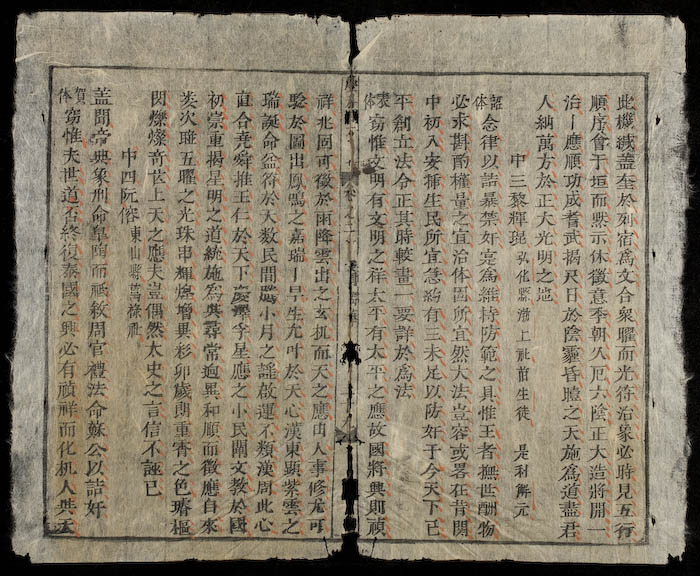 此機緘蓋奎於列宿為文合衆曜而光符治象必時見五行
順序會于垣而黙示休徵意季朝久厄六陰正大造將開一
治丨應順功成耆武揭尺日於陰霾昏曀之天施為道盡君
人納萬方於正大光明之地
中三黎輝琨 弘化縣 上社前生徒 是科觧元
詔体 念律以詰暴禁奸寔為維持防範之具惟王者撫世酬物
必求斟酌權量之宜治体固所宜然大法豈容或畧在昔関
中初入安揷生民所宜急約有三未足以防奸于今天下已
平創立法令正其時較畫一要詳於為法
表体 窃惟文明有文明之祥太平有太平之應故國將興則禎
祥兆固可徵於雨降雲出之玄机而天之應由人事修尤可
驗於圖出鳳鳴之嘉瑞丨早生允叶於天心漢東顕紫雲之
瑞誕命益符於天数民間小月之謠啟運不類漢周此心
直合堯舜推王仁於天下慶澤孚星應之小民闡文教於國
初崇重揭星明之道統施為與尋常逈異和順而徵應自來
次躔五曜之光珠串輝煌增異彩卯歲朗重霄之色璿樞
閃爍燦奇芒上天之應夫豈偶然太史之言信不誣已
中四阮俗 東山縣萬祿社
蓋聞帝典象刑命臯陶而祗敘周官禮法命蘇公以詰奸
賀体 窃惟大世道否終復泰國之興必有禎祥而化机人共玄